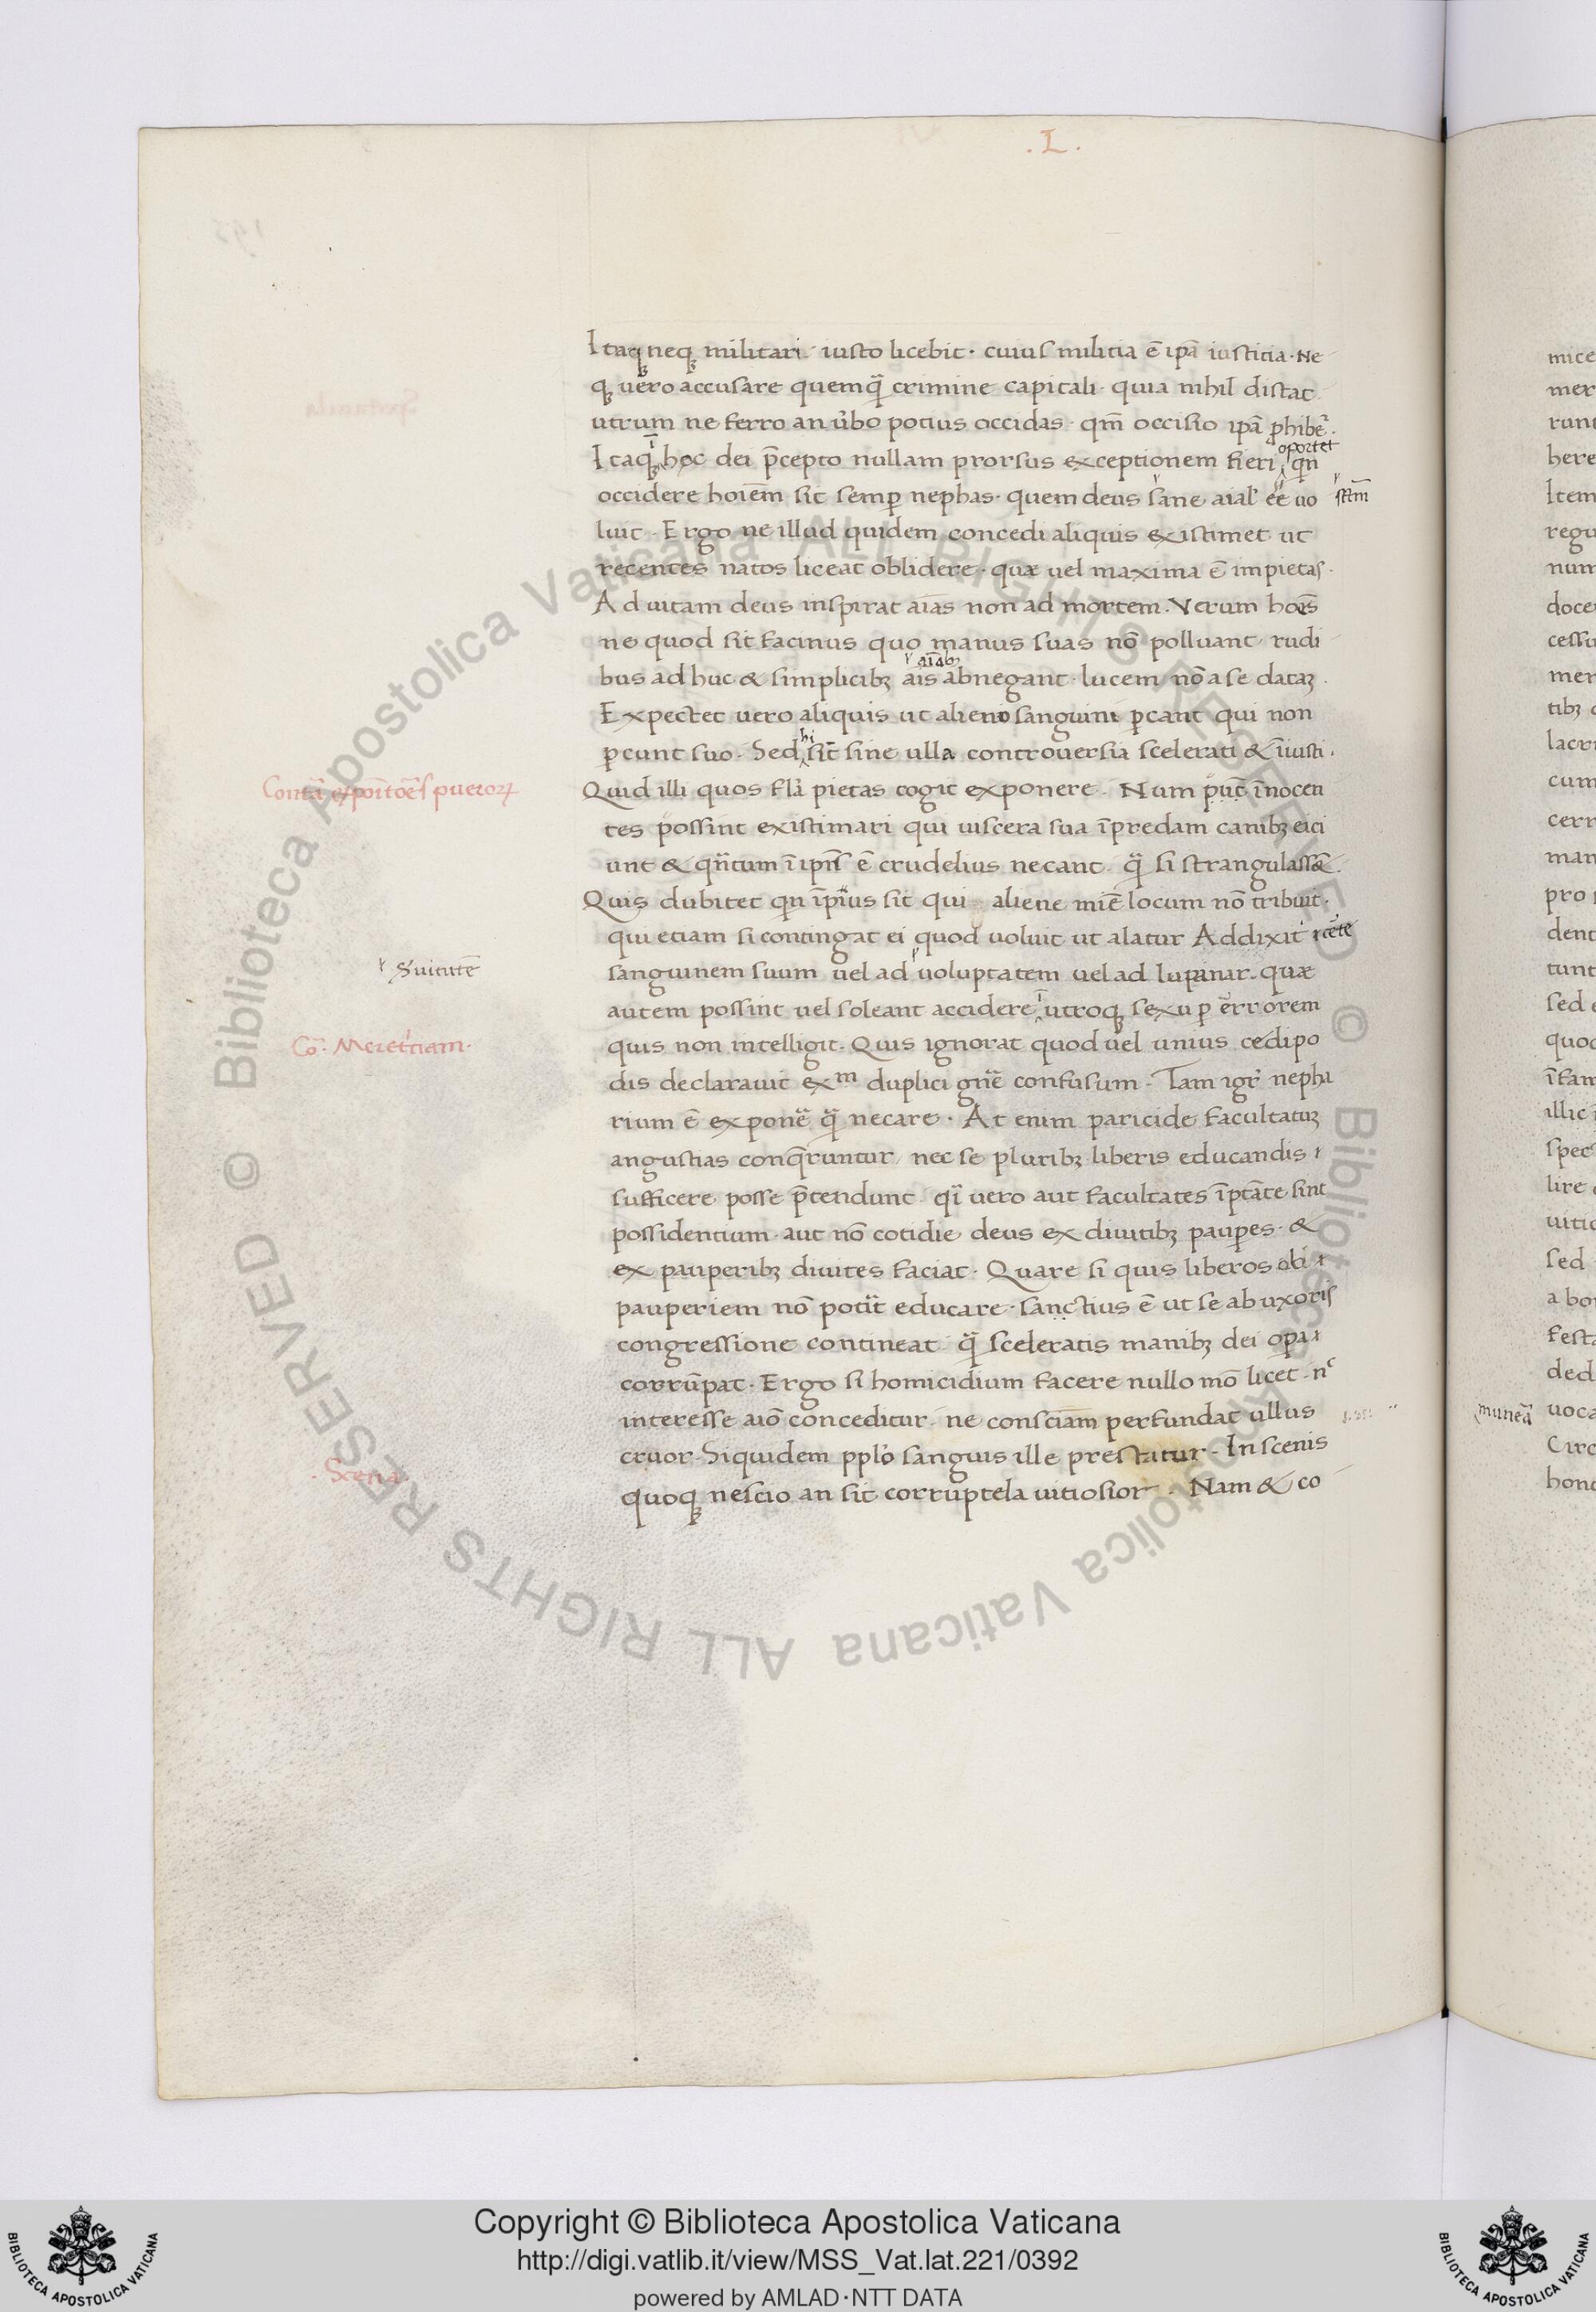 .L.
Itaq neq militari iusto licebit · cuius militia ē ipā iusticia · Ne
q uero accusare quemq̄ crimine capitali · quia nihil distat
utrum ne ferro an ūbo potius occidas · qm̄ occisio ipā phibet̄ ·
oportet
Itaq ī hoc dei p̄cepto nullam prorsus exceptionem fieri qn
occidere hoīem sit semp nephas · quem deus sane aial eē uo sctm̄
luit · Ergo ne illud quidem concedi aliquis existimet ut
recentes natos liceat oblidere · quæ uel maxima ē impietas ·
Ad uitam deus inspirat aīas non ad mortem · Verum hoīs
ne quod sit facinus quo manus suas nō polluant rudi
aīab
bus ad huc & simplicibꝫ ais abnegant · lucem nō a se dataꝫ ·
Expectet uero aliquis ut alieno sanguini pcant qui non
hi
pcunt suo · Sed sīt sine ulla controuersia scelerati & īiusti ·
Contā expoītōēs pueroꝝ
Quid illi quos flā pietas cogit exponere · Num put īnocen
tes possint existimari qui uiscera sua īpredam canibꝫ eici
unt & qn̄tum ī ipīs ē crudelius necant · q̄ si strangulassēt ·
Quis dubitet qn īpius sit qui aliene miē locum nō tribuit ·
qui etiam si contingat ei quod uoluit ut alatur Addixit certe
S'uitutē
sanguinem suum uel ad uoluptatem uel ad lupanar · quæ
autem possint uel soleant accidere ī utroq sexu p errorem
Cō · Meretriciam ·
quis non intelligit · Quis ignorat quod uel unius cedipo
dis declarauit exm duplici gn̄e confusum · Tam igr̄ nepha
rium ē exponē q̄ necare · At enim paricide facultatuꝫ
angustias conq̄runtur nec se pluribꝫ liberis educandis
sufficere posse p̄tendunt qī uero aut facultates īptāte sint
possidentium · aut nō cotidie deus ex diuitibꝫ paupes · &
ex pauperibꝫ diuites faciat · Quare si quis liberos obi
pauperiem nō potīt educare · sanctius ē ut se ab uxoris
congressione contineat · q̄ sceleratis manibꝫ dei opa
corrūpat · Ergo si homicidium facere nullo mō licet · nc
interesse aiō conceditur · ne consciam perfundat ullus
cruor · Siquidem pplo sanguis ille prestatur · In scenis
· Scena ·
quoq nescio an sit corruptela uitiosior · Nam & co
munea
© Biblioteca Apostolica Vaticana ALL RIGHTS RESERVED © Biblioteca Apostolica Vaticana ALL RIGHTS RESERVED
Copyright © Biblioteca Apostolica Vaticana
http://digi.vatlib.it/view/MSS_Vat.lat.221/0392
powered by AMLAD·NTT DATA
BIBLIOTECA APOSTOLICA VATICANA
BIBLIOTECA APOSTOLICA VATICANA